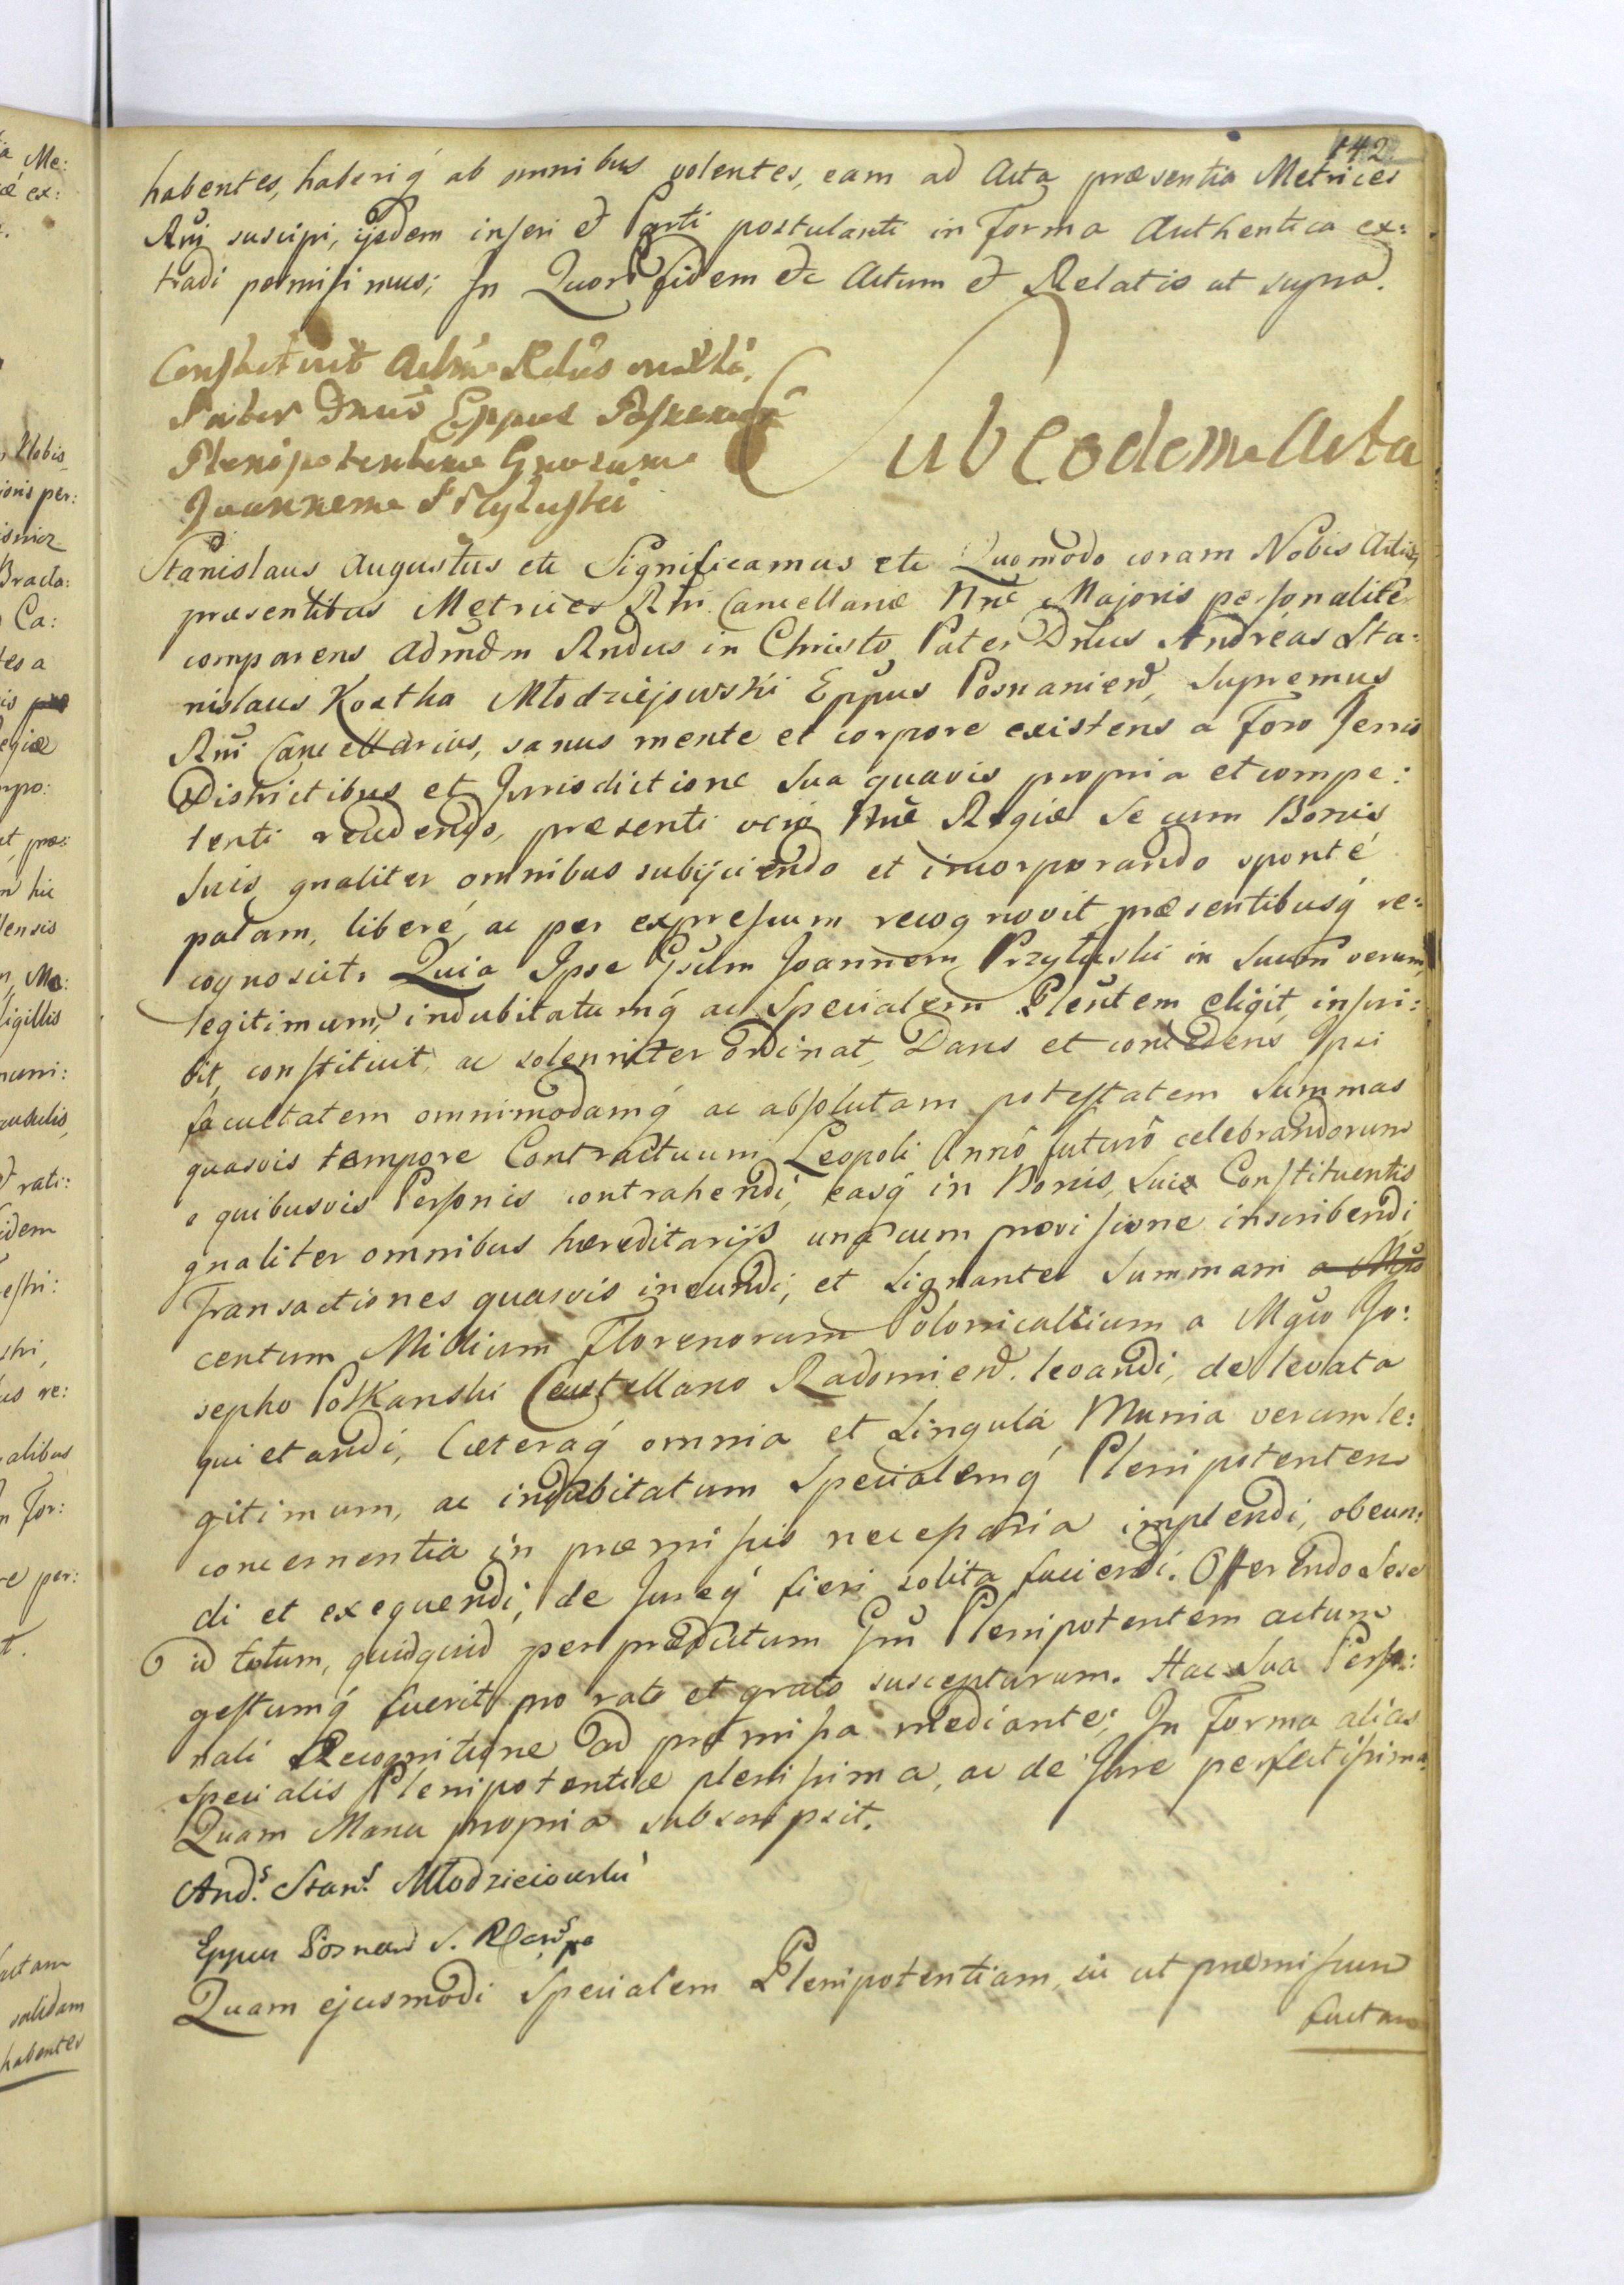 142
habentes, haberiq́ ab omnibus volentes, eam ad Acta præsentia Metrices
Rni suscipi, ijsdem inseri et Parti postulanti in Forma Authentica ex:
tradi permisimus; In Quorũ fidem etc Actum et Relatis ut supra.
Constituit Adm Rdus
Pater Dnus Eppus
Plenipotentem Gnosum
Joannem Przyłuski
Sub Eodem Acta
Stanislaus Augustus etc Significamus etc Quomodo coram Nobis Actisq
præsentibus Metrices Rni Cancellariæ Nræ Majoris personaliter
comparens Admdm Rndus in Christo Pater Dnus Andreas Sta:
nislaus Kostka Młodziejowski Eppus Posnanien, Supremus
Rni Cancellarius, sanus mente et corpore existens a Foro Terris
Districtibus et Jurisdictione Sua quavis propria et compe:
tenti recedendo, præsenti vero Nræ Regiæ Se cum Bonis
Suis gnaliter omnibus subijciendo et incorporando sponté
palam, liberé, ac per expressum recognovit præsentibusq́ re:
cognoscit. Quia Ipse Gsum Joannem Przyłuski in Suum verum,
legitimum, indubitatumq́ ac Specialem Plentem eligit, inscri:
bit, constituit, ac solenniter ordinat, Dans et concedens Ipsi
facultatem omnimodamq́ ac absolutam potestatem Summas
quasvis tempore Contractuum Leopoli Anno futuro celebrandorum
a quibusvis Personis contrahendi, easq́ in Bonis Suis Constituentis
gnaliter omnibus hæreditarijs una cum provisione inscribendi
Transactiones quasvis ineundi, et Signanter Summam a Mgco
centum Millium Florenorum Polonicalium a Mgco Jo:
sepho Potkanski Castellano Radomien. levandi, de levata
quietandi, Cæteraq́ omnia et Singula Munia verum le:
gitimum, ac indubitatum Specialemq́ Plenipotentem
concernentia in præmissis necessaria implendi, obeun:
di et exequendi, de Jureq́ fieri solita faciendi. Offerendo Sese
id totum, quidquid per prædictum Gsm Plenipotentem actum
gestumq́ fuerit pro rato et grato suscepturum. Hac Sua Perso:
nali Recognitione ad præmissa mediante; In Forma alias
Specialis Plenipotentiæ plenissima, ac de Jure perfectissima
Quam Manu propria subscripsit.
Ands. Stans. Młodzieiowski
Eppus Posnan S. R.
Quam ejusmodi Specialem Plenipotentiam, sic ut præmissum
factam